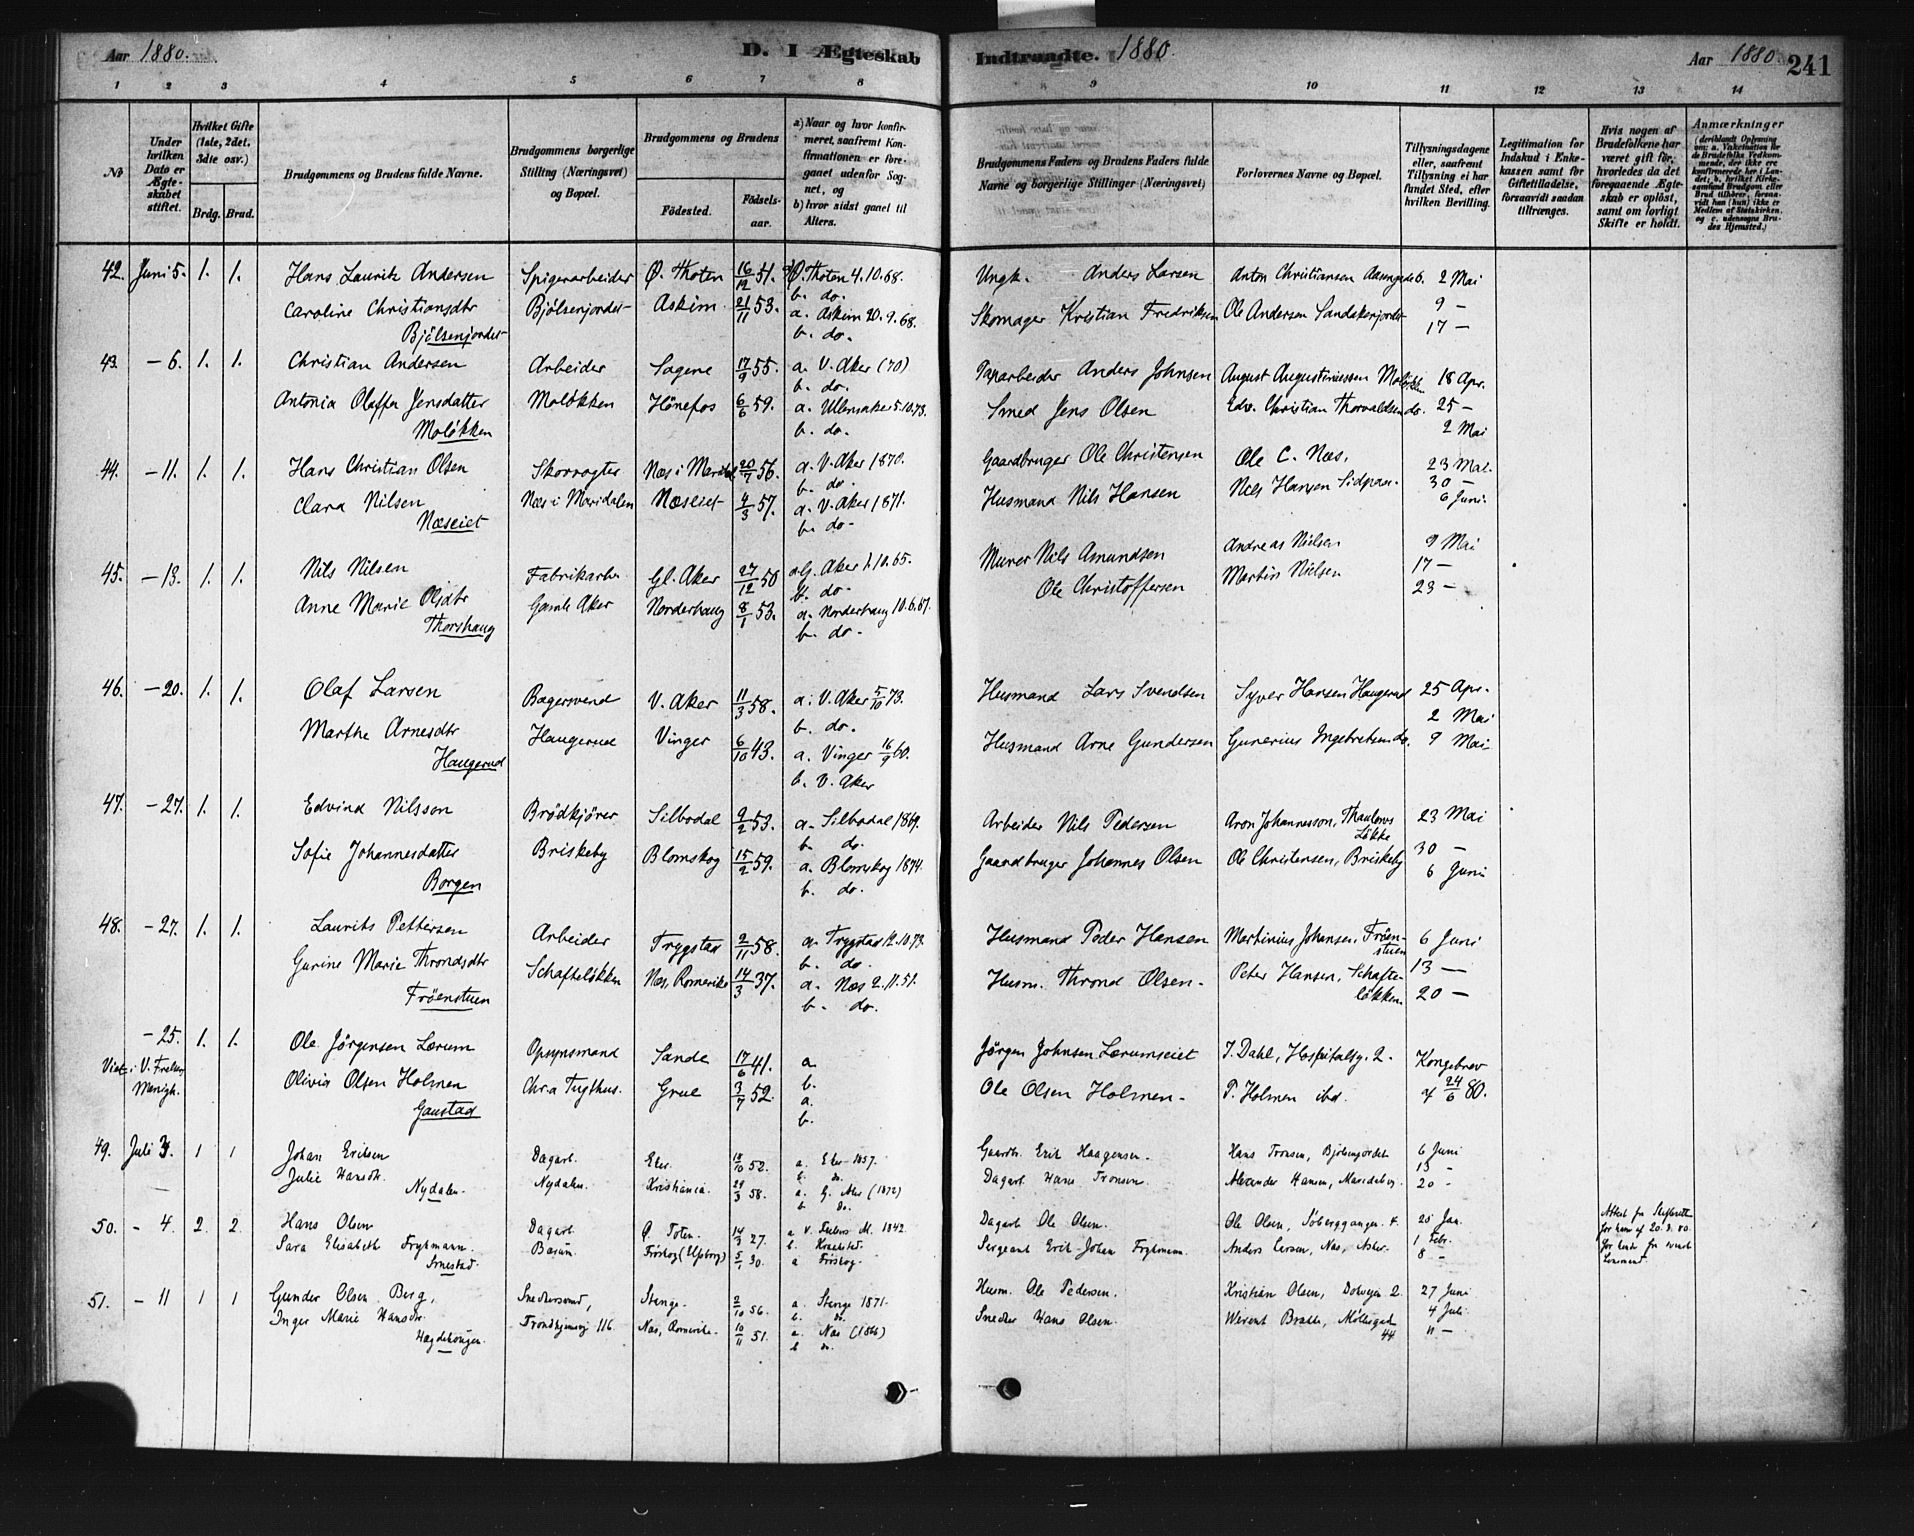 Aar 1880.
D. I Ægteskab
Indtraadte. 1880.
Aar 1880.
241
1 2 3 4 5 6 7 8
9 10 11 12 13 14
No
Under hvilken Dato er Ægteskabet stiftet.
Hvilket Gifte (1ste, 2det, 3die osv.)
Brdg. Brud.
Brudgommens og Brudens fulde Navne.
Brudgommens borgerlige Stilling (Næringsvei) og Bopæl.
Brudgommens og Brudens
Fødested.
Fødselsaar.
a) Naar og hvor konfirmeret, saafremt Konfirmationen er foregaaet udenfor Sognet, og
b) hvor sidst gaaet til Alters.
Brudgommens Faders og Brudens Faders fulde Navne og borgerlige Stillinger (Næringsvei)
Forlovernes Navne og Bopæl.
Tillysningsdagene eller, saafremt Tillysning ei har fundet Sted, efter hvilken Bevilling.
Legitimation for Indskud i Enkekassen samt for Giftetilladelse, forsaavidt saadan tiltrænges.
Hvis nogen af Brudefolkene har været gift før, hvorledes da det foregaaende Ægteskab er opløst, samt om lovligt Skifte er holdt.
Anmærkninger
42. Juni 5. 1. 1. Hans Lauritz Andersen Spigerarbeider Ø. Thoten 16/12 51. a Ø. Thoten 4.10.68. Ungk. Anders Larsen Anton Christiansen 2 Mai
b. do. 9 —
Caroline Christiansdtr Bjølsenjordet Askim 21/11 53. a. Askim 20.9.68. Skomager Kristian Fredriksen Ole Andersen Sandakerjordet 17 —
Bjölsenjordet b. do.
43. — 6. 1. 1. Christian Andersen Arbeider Sagene 17/9 55. a. V. Aker (70) Paparbeider Anders Johnsen August Augustiniussen Moløkken 18 Apr.
b. do.
Antonia Oleffa Jensdatter Moløkken Hönefos 6/6 59. a. Ullensaker 5.10.73. Smed Jens Olsen Edv. Christian Thorvaldsen do. 25 —
Moløkken b. do. 2 Mai
44. — 11. 1. 1. Hans Christian Olsen Skovvogter Næs i Maridal 20/7 56. a. V. Aker 1870. Gaardbruger Ole Christensen Ole C. Næs. 23 Mai.
b. do. 30 —
Clara Nilsen Næs i Maridalen Næseiet 4/3 57. a. V. Aker 1871. Husmand Nils Hansen Nils Hansen 6 Juni
Næseiet b. do.
45. — 13. 1. 1. Nils Nilsen Fabrikarb. Gl. Aker 27/12 50 a. G. Aker 1.10.65. Murer Nils Amundsen Andreas Nielsen 9 Mai
b. do. 17 —
Anne Marie Olsdtr Gamle Aker Norderhaug 8/1 53. a. Norderhaug 10.6.67. Ole Christoffersen Martin Nielsen 23 —
Thorshaug b. do.
46. — 20. 1. 1. Olaf Larsen Bagersvend V. Aker 11/3 58. a. V. Aker 5/10 73. Husmand Lars Svendsen Syver Hansen Haugerud 25 Apr.
b. do. 2 Mai
Marthe Arnesdtr Haugerud Vinger 6/10 43. a. Vinger 16/9 60. Husmand Arne Gundersen Gunerius Ingebretsen do. 9 Mai
Haugerud b. V. Aker
47. — 27. 1. 1. Edvind Nilsson Brödkjörer Silbodal 9/2 53. a. Silbodal 1869. Arbeider Nils Pedersen Aron Johannesson, Thaulows Løkke 23 Mai
b. do. 30 —
Sofie Johannesdatter Briskeby Blomskog 15/2 59. a. Blomskog 1874. Gaardbruger Johannes Olsen Ole Christensen, Briskeby 6 Juni
Borgen b. do.
48. — 27. 1. 1. Laurits Pettersen Arbeider Trygstad 2/11 58. a. Trygstad 12.10.73. Husmand Peder Hansen Martinius Johansen, Fröenstuen 6 Juni
b. do. 13 —
Gurine Marie Throndsdtr Schafteløkken Næs, Romerike 14/3 37. a. Næs 2.11.51. Husm. Thrond Olsen. Peter Hansen, Schafteløkken 20 —
Fröenstuen b. do.
— 25. 1. 1. Ole Jörgensen Lærum Opsynsmand Sande 17/6 41. a. Jörgen Johnsen Lærumseiet J. Dahl, Hospitalsg. 2. Kongebrev
Viet i V. Frelsers Menigh. b.
Olivia Olsen Holmen Chr.a Tugthus. Grue 3/7 52. a. Ole Olsen Holmen P. Holmen ibd. 24/6 80.
Gaustad b.
49. Juli 3. 1 1 Johan Eriksen Dagarb. Eker 18/10 52. a. Eker 1867. Gaardbr. Erik Haagensen. Hans Tronsen, Bjølsenjordet 6 Juni
b. do. 13 -
Julie Hansdtr. Nydalen. Kristiania. 29/3 58. a. G. Aker (1872) Dagarb. Hans Tronsen. Alexander Hansen, 20 -
Nydalen. b. do.
50. - 4. 2. 2. Hans Olsen Dagarb. Ø. Toten. 14/3 27. a V. 1842. Dagarb. Ole Olsen. Ole Olsen, 4. 25 Jan.
b. 1 Febr.
Sara Elisabeth Frykmann. Bærum. 5/1 30. a Sergeant Erik Johan Frykmann. Anders Larsen, Næs, Asker. 8 -
Attest fra Skifteretten for ham af 20.3.80. for hende fra svensk Lensmand.
51. - 11 1 1 Gunder Olsen Berg, Snedkersvend, Stange. 2/10 56. a. Stange 1871. Husm. Ole Pedersen. Kristian Olsen, 2. 27 Juni
b. do. 4 Juli
Inger Marie Hansdtr. Trondhjemsvej 116. Næs, Romerike. 10/11 51. a. Næs (1866) Snedker Hans Olsen. Bratli, Møllergaden 44. 11 —
Hagdehougen. b do.